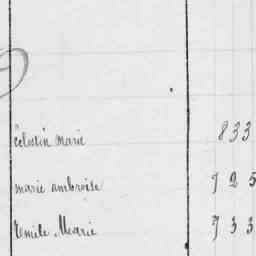 Célestin Marie 833
marie ambroise 725
Emile Marie 733